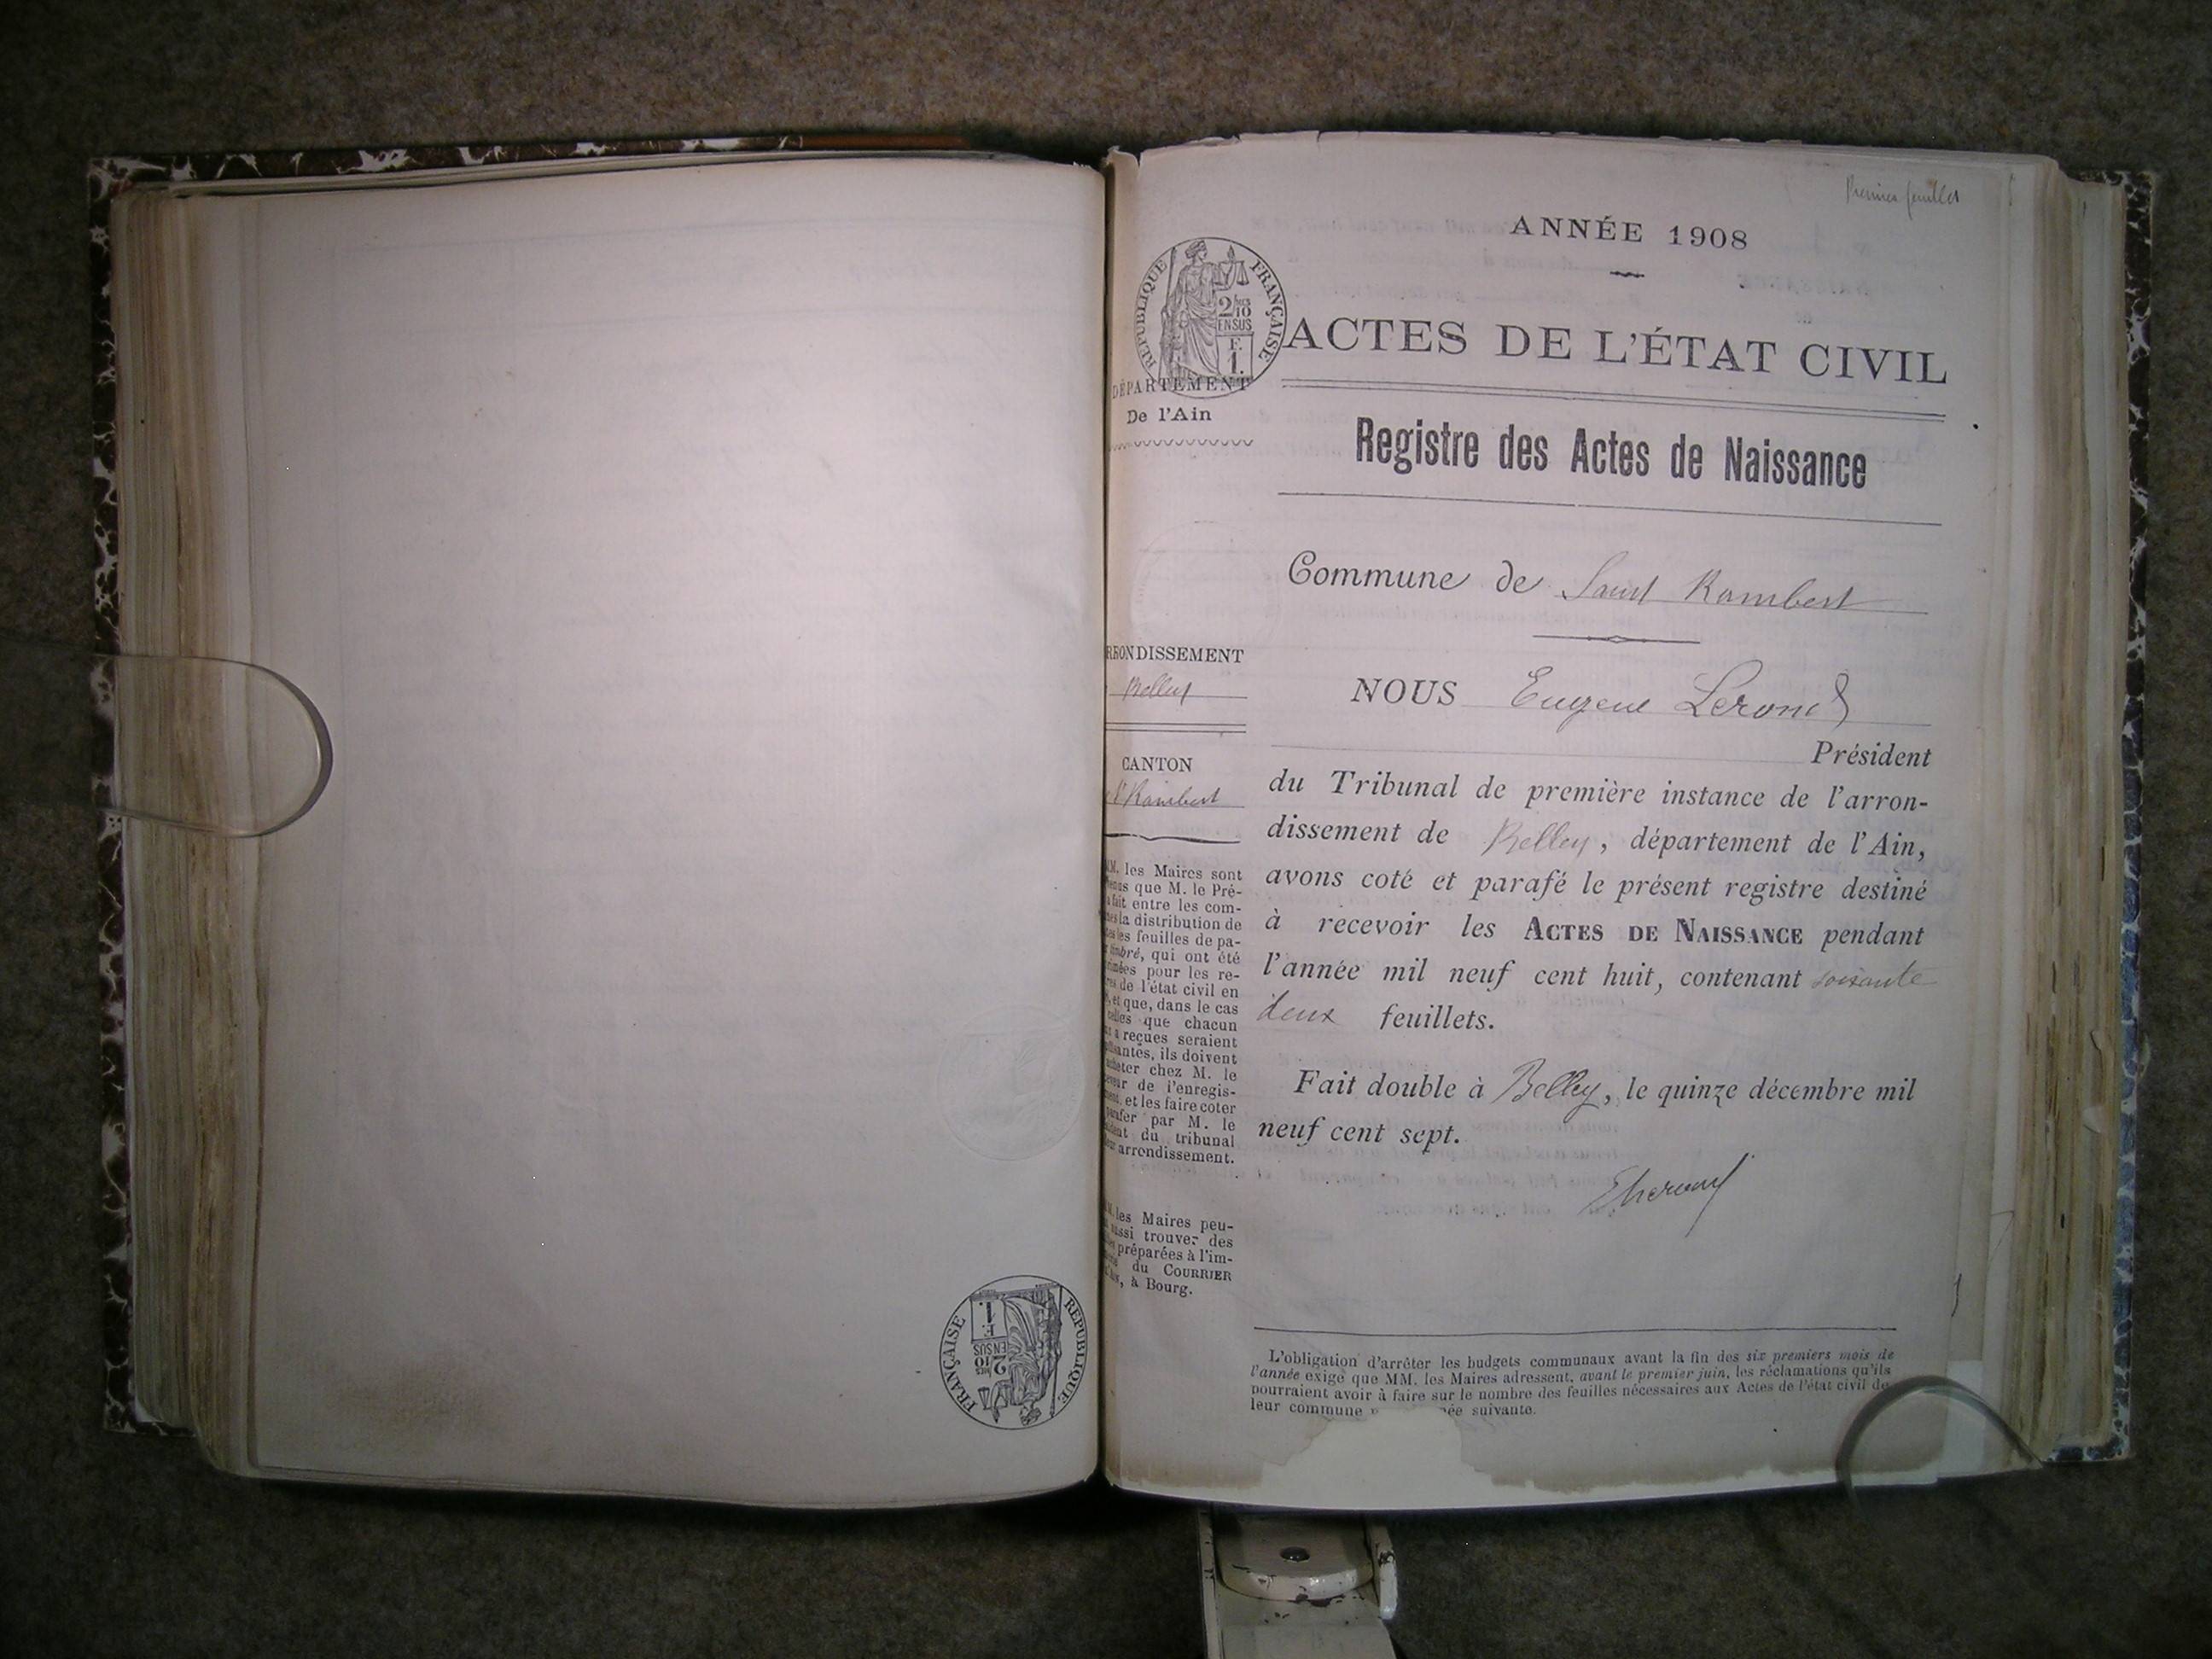 Premier feuillet
ANNÉE 1908
RÉPUBLIQUE FRANÇAISE
2/10
EN SUS
F.
1.
ACTES DE L'ÉTAT CIVIL
DÉPARTEMENT
De l'Ain
Registre des Actes de Naissance
Commune de Saint Rambert
RRONDISSEMENT
Belley
NOUS Eugene Lerond
Président
CANTON
St Rambert
du Tribunal de première instance de l'arron-
dissement de Belley, département de l'Ain,
avons coté et parafé le présent registre destiné
à recevoir les ACTES DE NAISSANCE pendant
l'année mil neuf cent huit, contenant soixante
deux feuillets.
Fait double à Belley, le quinze décembre mil
neuf cent sept.
MM. les Maires sont
que M. le Pré-
fait entre les com-
la distribution de
les feuilles de pa-
qui ont été
pour les re-
de l'état civil en
et que, dans le cas
celles que chacun
a reçues seraient
ils doivent
chez M. le
de l'enregis-
et les faire coter
par M. le
du tribunal
arrondissement.
les Maires peu-
aussi trouver des
préparées à l'im-
du COURRIER
à Bourg.
L'obligation d'arrêter les budgets communaux avant la fin des six premiers mois de
l'année exige que MM. les Maires adressent, avant le premier juin, les réclamations qu'ils
pourraient avoir à faire sur le nombre des feuilles nécessaires aux Actes de l'état civil de
leur commune suivante.
RÉPUBLIQUE FRANÇAISE
2/10
EN SUS
F.
1.